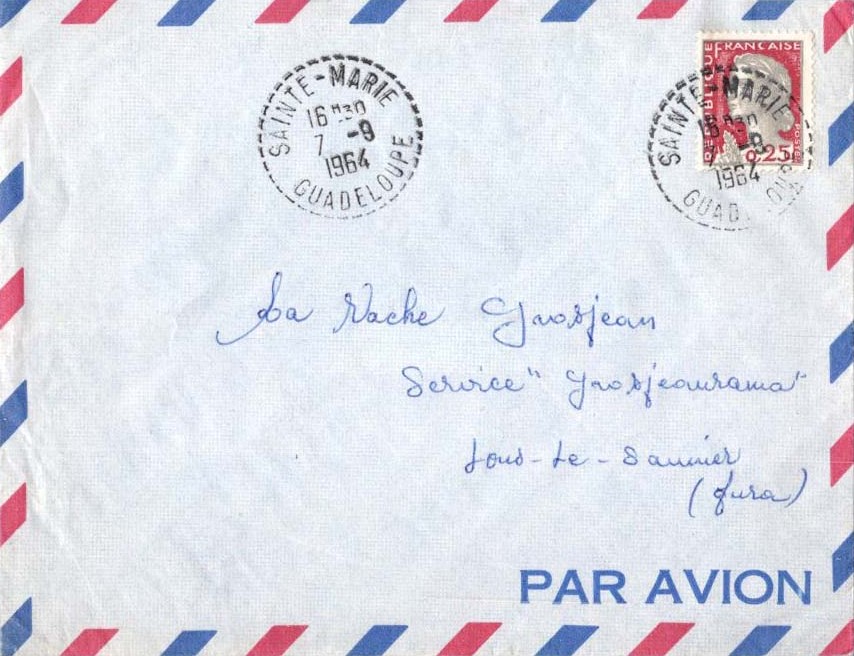 SAINTE-MARIE
16H30
7 -9
1964
GUADELOUPE
REPUBLIQUE FRANCAISE
0,25
POSTES
SAINTE-MARIE
16H30
7 -9
1964
GUADELOUPE
La Vache Grosjean
Service "Grosjeanrama"
Lons-Le-Saunier
(Jura)
PAR AVION